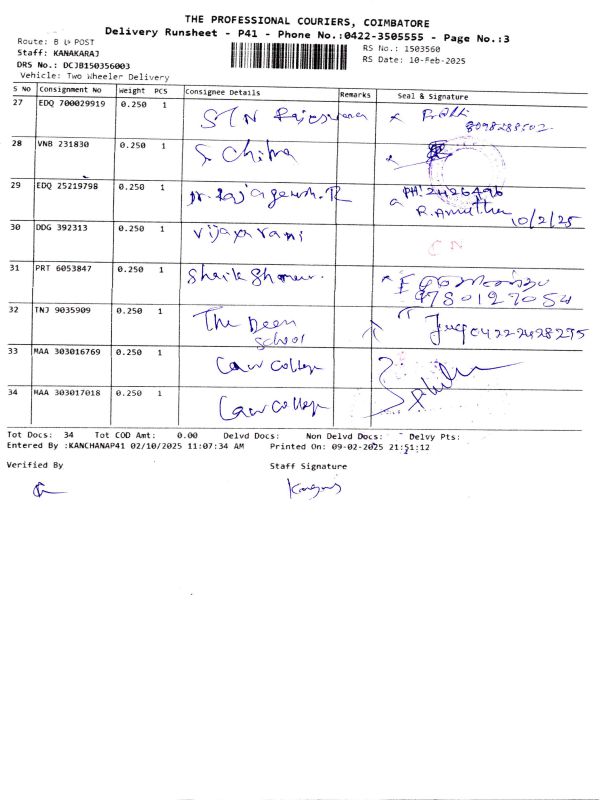 THE PROFESSIONAL COURIERS, COIMBATORE
Delivery Runsheet - P41 - Phone No.:0422-3505555 - Page No.:3
Route: B POST
RS No.: 1503560
Staff: KANAKARAJ
RS Date: 10-Feb-2025
DRS No.: DCJB150356003
Vehicle: Two Wheeler Delivery
S No Consignment No Weight PCS Consignee Details Remarks Seal & Signature
27 EDQ 700029919 0.250 1
8098283502
28 VNB 231830 0.250 1 S. Chitra
29 EDQ 25219798 0.250 1
PH: 2426496
R. Amutha 10/2/25
30 DDG 392313 0.250 1 Vijaya rani
CN
31 PRT 6053847 0.250 1 Sheik
9780127054
32 TNJ 9035909 0.250 1 The Deen
School
04222428275
33 MAA 303016769 0.250 1 Law College
34 MAA 303017018 0.250 1 Law College
Tot Docs: 34 Tot COD Amt: 0.00 Delvd Docs: Non Delvd Docs: Delvy Pts:
Entered By :KANCHANAP41 02/10/2025 11:07:34 AM Printed On: 09-02-2025 21:51:12
Verified By Staff Signature